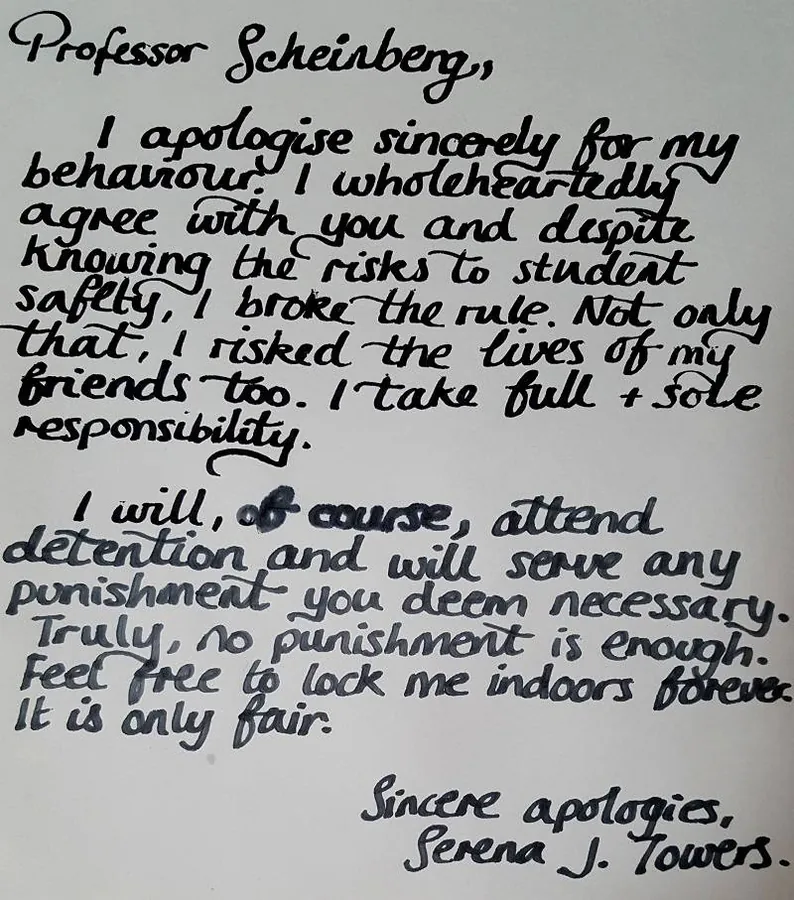 Professor Scheinberg,
I apologise sincerely for my
behaviour. I wholeheartedly
agree with you and despite
knowing the risks to student
safety, I broke the rule. Not only
that, I risked the lives of my
friends too. I take full + sole
responsibility.
I will, of course, attend
detention and will serve any
punishment you deem necessary.
Truly, no punishment is enough.
Feel free to lock me indoors forever.
It is only fair.
Sincere apologies,
Serena J. Towers.